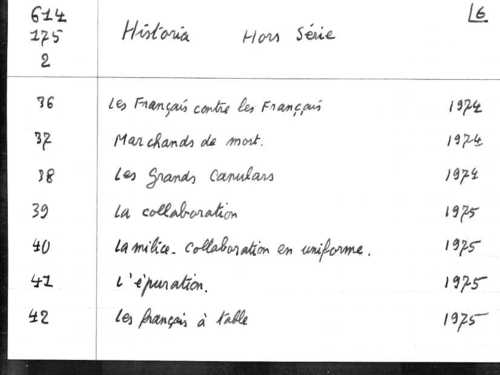 614 Historia Hors Série 6
175
2
36 Les Français contre les Français 1974
37 Marchands de mort. 1974
38 Les Grands Canulars 1974
39 La collaboration 1975
40 La milice - Collaboration en uniforme. 1975
41 L'épuration. 1975
42 Les français à table 1975